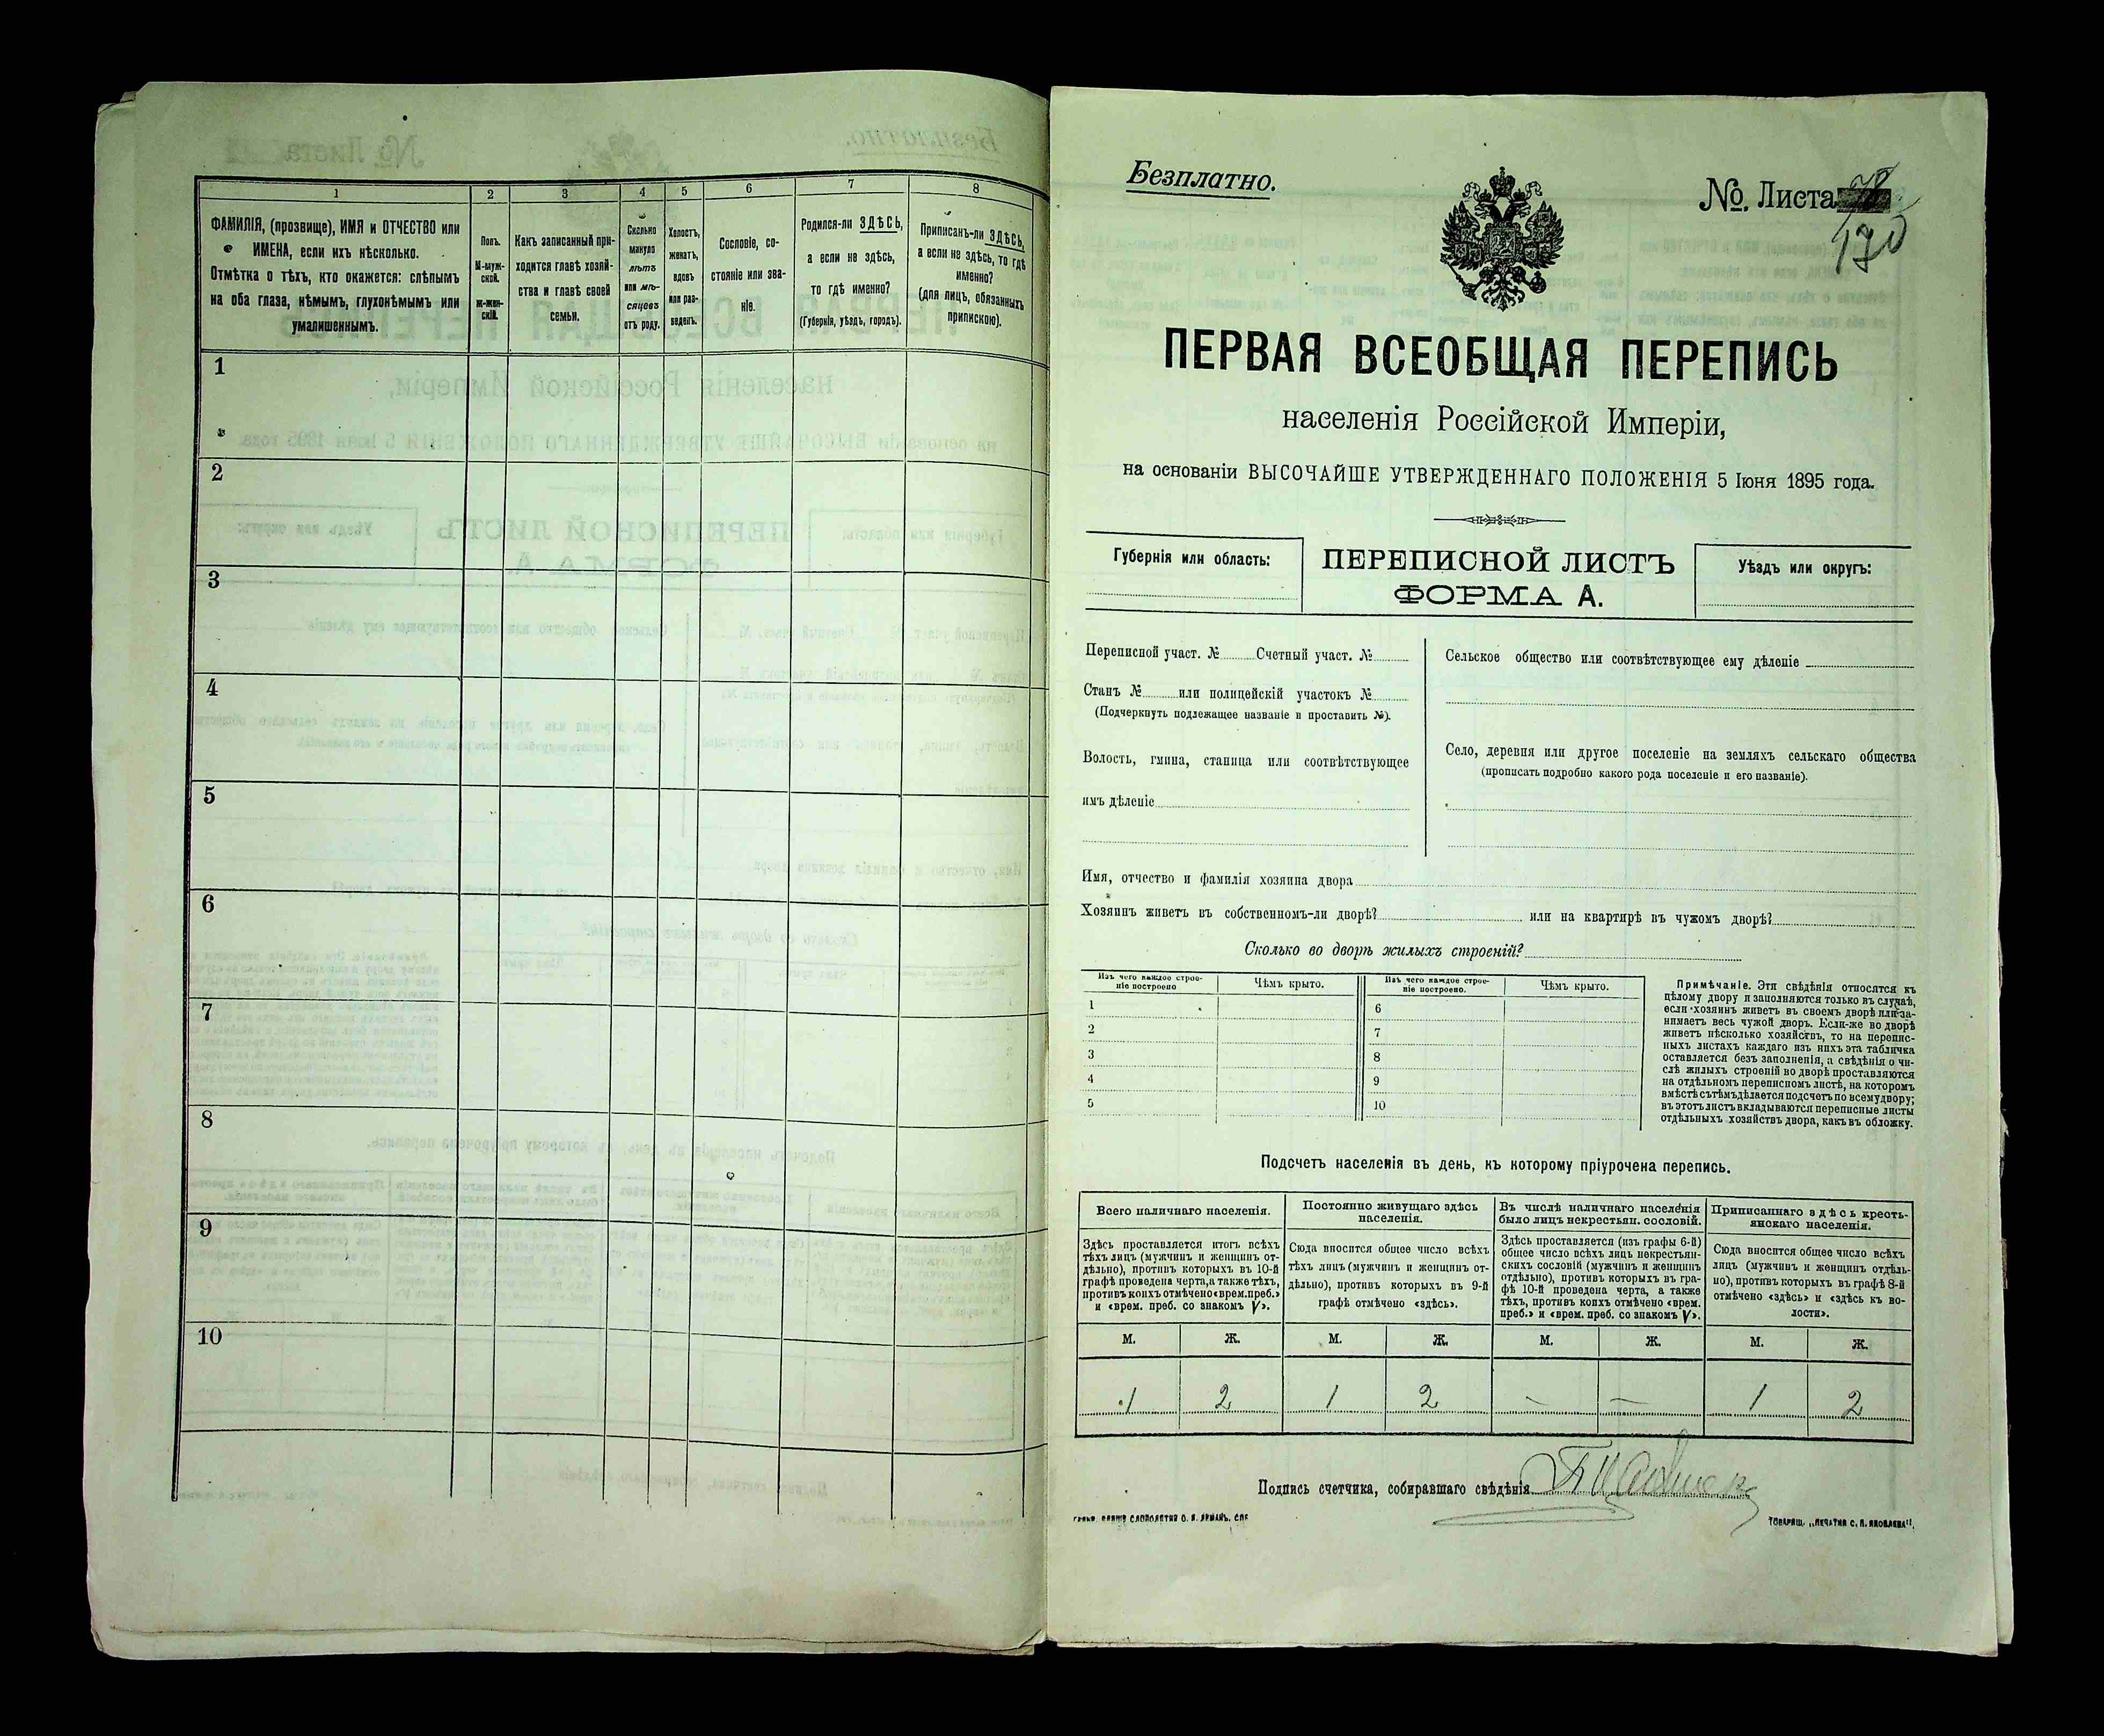 1
2
3
4
5
6
7
8
ФАМИЛІЯ, (прозвище), ИМЯ и ОТЧЕСТВО или
ИМЕНА, если ихъ нѣсколько.
Отмѣтка о тѣхъ, кто окажется: слѣпымъ
на оба глаза, нѣмымъ, глухонѣмымъ или
умалишеннымъ.
Полъ.
М-муж-
ской.
ж-жен-
скій.
Какъ записанный при-
ходится главѣ хозяй-
ства и главѣ своей
семьи.
Сколько
минуло
лѣтъ
или мѣ-
сяцевъ
отъ роду.
Холостъ,
женатъ,
вдовъ
или раз-
веденъ.
Сословіе, со-
стояніе или зва-
ніе.
Родился-ли ЗДѢСЬ,
а если не здѣсь,
то гдѣ именно?
(Губернія, уѣздъ, городъ).
Приписанъ-ли ЗДѢСЬ,
а если не здѣсь, то гдѣ
именно?
(для лицъ, обязанныхъ
припискою).
1
2
3
4
5
6
7
8
9
10
Безплатно.
№. Листа
170
ПЕРВАЯ ВСЕОБЩАЯ ПЕРЕПИСЬ
населенія Россійской Имперіи,
на основаніи ВЫСОЧАЙШЕ УТВЕРЖДЕННАГО ПОЛОЖЕНІЯ 5 Іюня 1895 года.
Губернія или область:
ПЕРЕПИСНОЙ ЛИСТЪ
ФОРМА А.
Уѣздъ или округъ:
Переписной участ. № Счетный участ. №
Станъ № или полицейскій участокъ №
(Подчеркнуть подлежащее названіе и проставить №).
Волость, гмина, станица или соотвѣтствующее
имъ дѣленіе
Сельское общество или соотвѣтствующее ему дѣленіе
Село, деревня или другое поселеніе на земляхъ сельскаго общества
(прописать подробно какого рода поселеніе и его названіе).
Имя, отчество и фамилія хозяина двора
Хозяинъ живетъ въ собственномъ-ли дворѣ? или на квартирѣ въ чужомъ дворѣ?
Сколько во дворѣ жилыхъ строеній?
Изъ чего каждое строе-
ніе построено
Чѣмъ крыто.
Изъ чего каждое строе-
ніе построено.
Чѣмъ крыто.
1
2
3
4
5
6
7
8
9
10
Примѣчаніе. Эти свѣдѣнія относятся къ
цѣлому двору и заполняются только въ случаѣ,
если хозяинъ живетъ въ своемъ дворѣ или за-
нимаетъ весь чужой дворъ. Если-же во дворѣ
живетъ нѣсколько хозяйствъ, то на перепис-
ныхъ листахъ каждаго изъ нихъ эта табличка
оставляется безъ заполненія, а свѣдѣнія о чи-
слѣ жилыхъ строеній во дворѣ проставляются
на отдѣльномъ переписномъ листѣ, на которомъ
вмѣстѣ съ тѣмъ дѣлается подсчетъ по всему двору;
въ этотъ листъ вкладываются переписные листы
отдѣльныхъ хозяйствъ двора, какъ въ обложку.
Подсчетъ населенія въ день, къ которому пріурочена перепись.
Всего наличнаго населенія.
Здѣсь проставляется итогъ всѣхъ
тѣхъ лицъ (мужчинъ и женщинъ от-
дѣльно), противъ которыхъ въ 10-й
графѣ проведена черта, а также тѣхъ,
противъ коихъ отмѣчено «врем. преб.»
и «врем. преб. со знакомъ V».
Постоянно живущаго здѣсь
населенія.
Сюда вносится общее число всѣхъ
тѣхъ лицъ (мужчинъ и женщинъ от-
дѣльно), противъ которыхъ въ 9-й
графѣ отмѣчено «здѣсь».
Въ числѣ наличнаго населенія
было лицъ некрестьян. сословій.
Здѣсь проставляется (изъ графы 6-й)
общее число всѣхъ лицъ некрестьян-
скихъ сословій (мужчинъ и женщинъ
отдѣльно), противъ которыхъ въ гра-
фѣ 10-й проведена черта, а также
тѣхъ, противъ коихъ отмѣчено «врем.
преб.» и «врем. преб. со знакомъ V».
Приписаннаго здѣсь кресть-
янскаго населенія.
Сюда вносится общее число всѣхъ
лицъ (мужчинъ и женщинъ отдѣль-
но), противъ которыхъ въ графѣ 8-й
отмѣчено «здѣсь» и «здѣсь къ во-
лости».
М. Ж. М. Ж. М. Ж. М. Ж.
1 2 1 2 — — 1 2
Подпись счетчика, собиравшаго свѣдѣнія
ТОВАРИЩ. „ПЕЧАТНЯ С. П. ЯКОВЛЕВА".